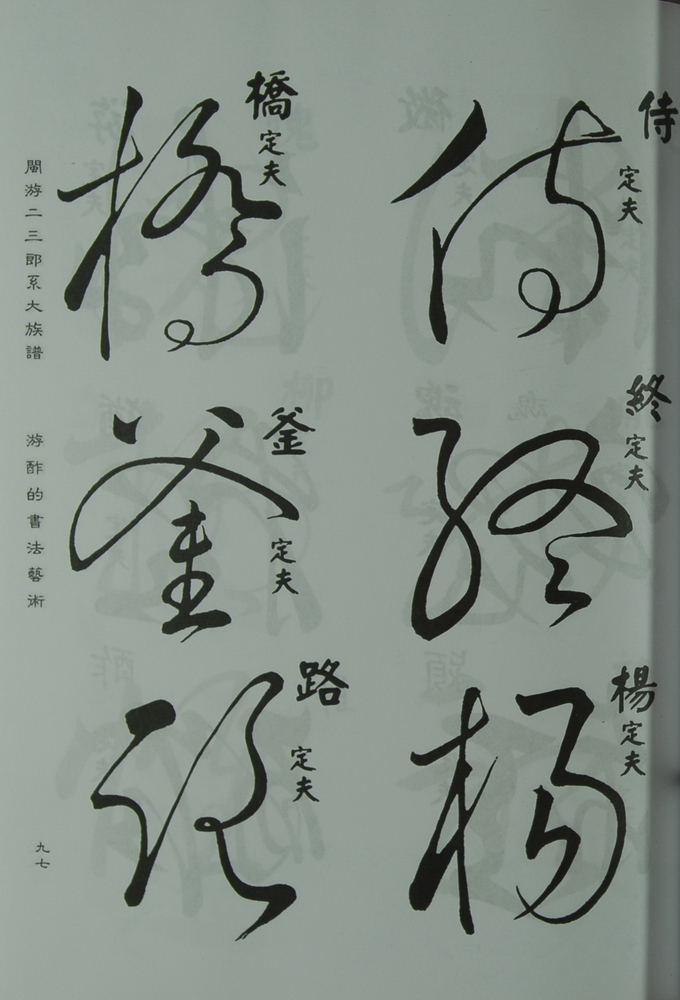 侍
定夫
終
定夫
楊
定夫
橋
定夫
釜
定夫
路
定夫
閩游二三郎系大族譜
游酢的書法藝術
九七